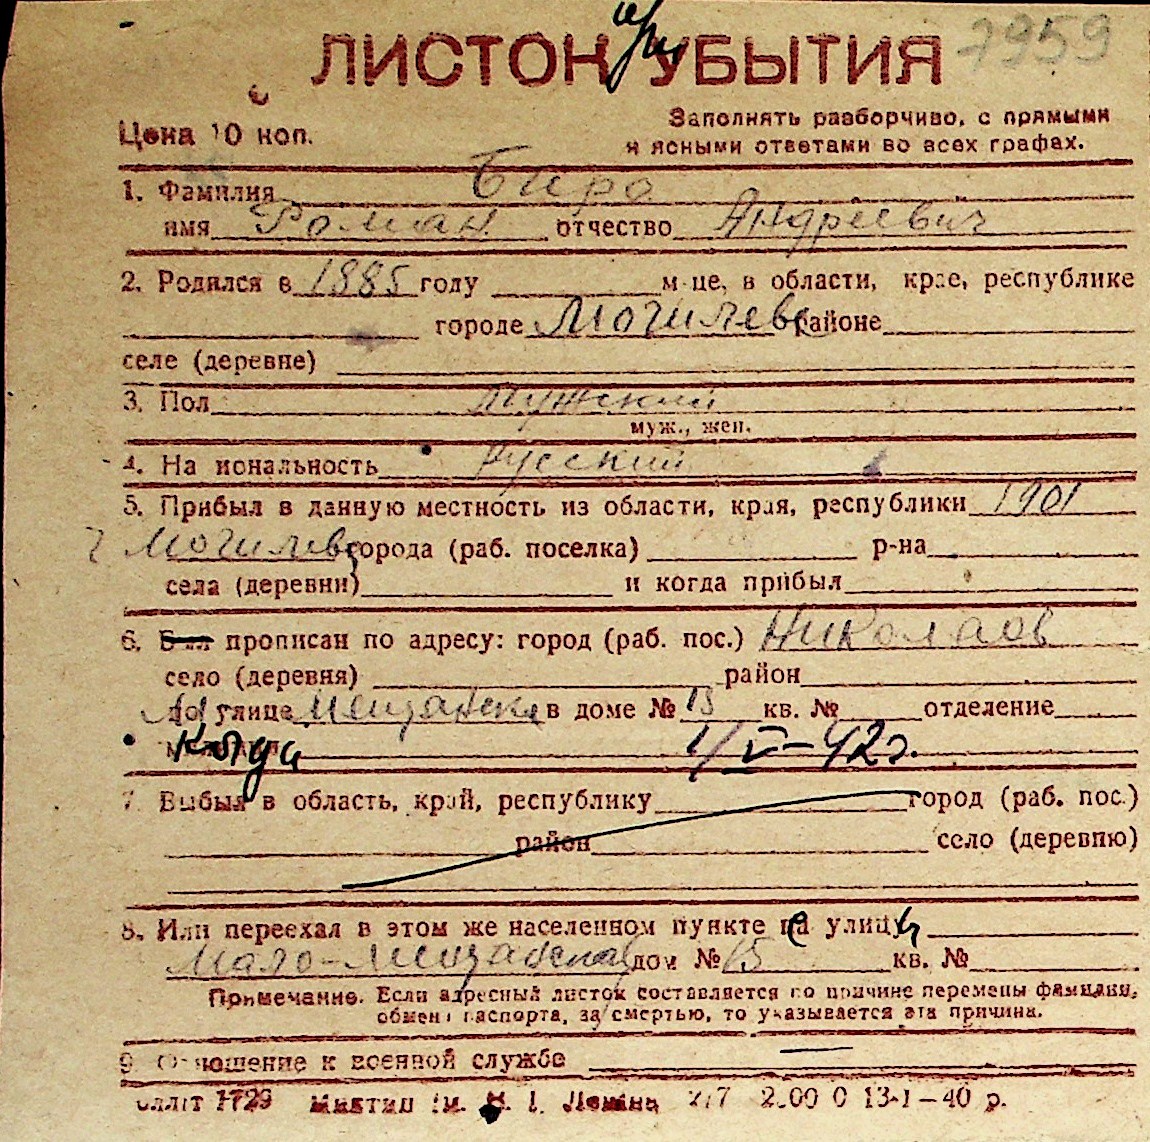 при
ЛИСТОК УБЫТИЯ 7959
Цена 10 коп.
Заполнять разборчиво, с прямыми
и ясными ответами во всех графах.
1. Фамилия Биро
имя Роман отчество Андреевич
2. Родился в 1885 году м-це, в области, крае, республике
городе Могилеве районе
селе (деревне)
3. Пол Мужский
муж., жен.
4. На иональность Русский
5. Прибыл в данную местность из области, края, республики 1901
г Могилев города (раб. поселка) р-на
села (деревни) и когда прибыл
6. Был прописан по адресу: город (раб. пос.) Николаов
село (деревня) район
по улице Мещанска в доме № 15 кв. № отделение
Когда 1/V-42г.
7. Выбыл в область, край, республику город (раб. пос.)
район село (деревню)
8. Или переехал в этом же населенном пункте с улицы
Мало-Мещанская дом № 15 кв. №
Примечание. Если адресный листок составляется по причине перемены фамилии,
обмена паспорта, за смертью, то указывается эта причина.
9. Отношение к военной службе —
1729 им. В. И. Ленина 2.00 0 13-1-40 р.